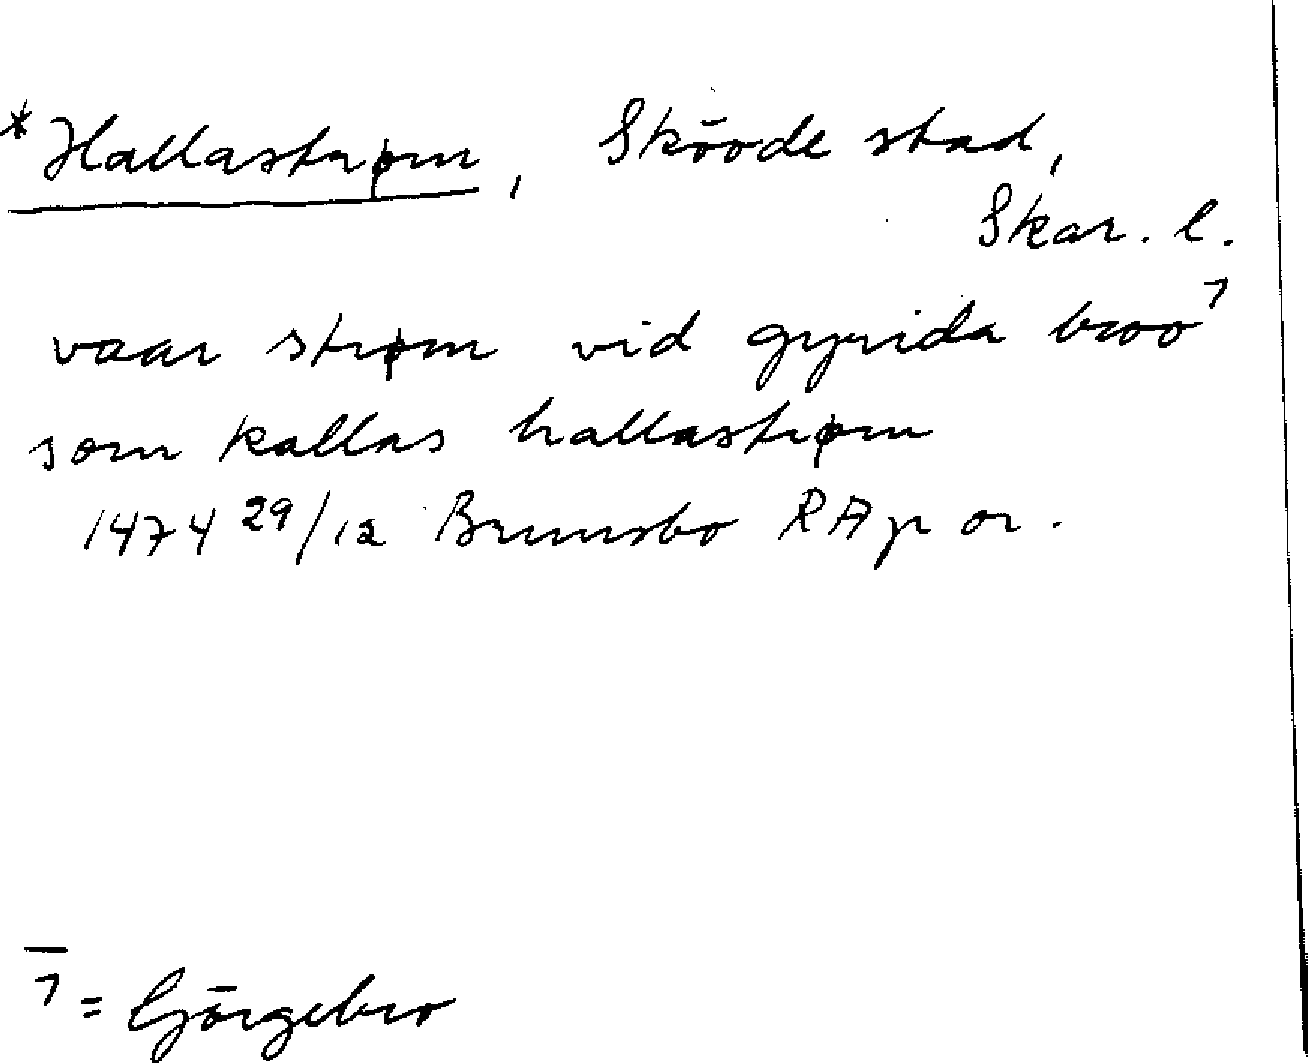 * Hallastrøm, Skövde stad,
Skar. l.
vaar strøm vid gyrida broo 1
som kallas hallastrøm
1474 29/12 Brunsbo RAp or.
1 = Görgebro